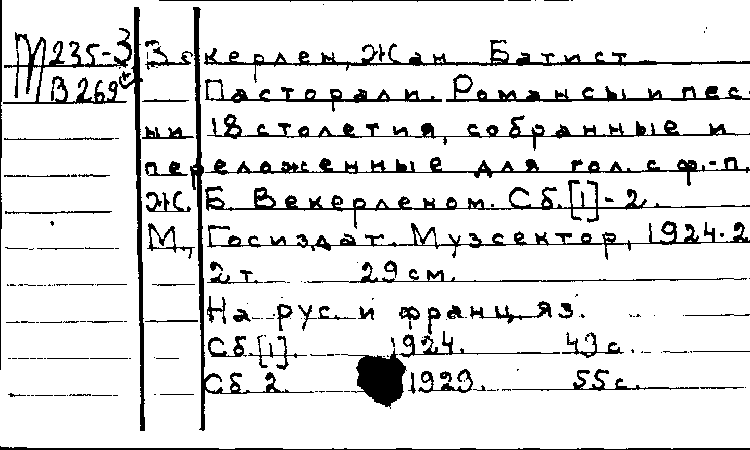 М 235-3 Векерлен, Жан Батист
В 269 Пасторали. Романсы и пес-
ни 18 столетия, собранные и
переложенные для гол. с ф.-п.
Ж. Б. Векерленом. Сб. [1]-2.
М., Госиздат. Музсектор, 1924-2
2 т. 29 см.
На рус. и франц. яз.
Сб. [1]. 1924. 49 с.
Сб. 2. 1929. 55 с.